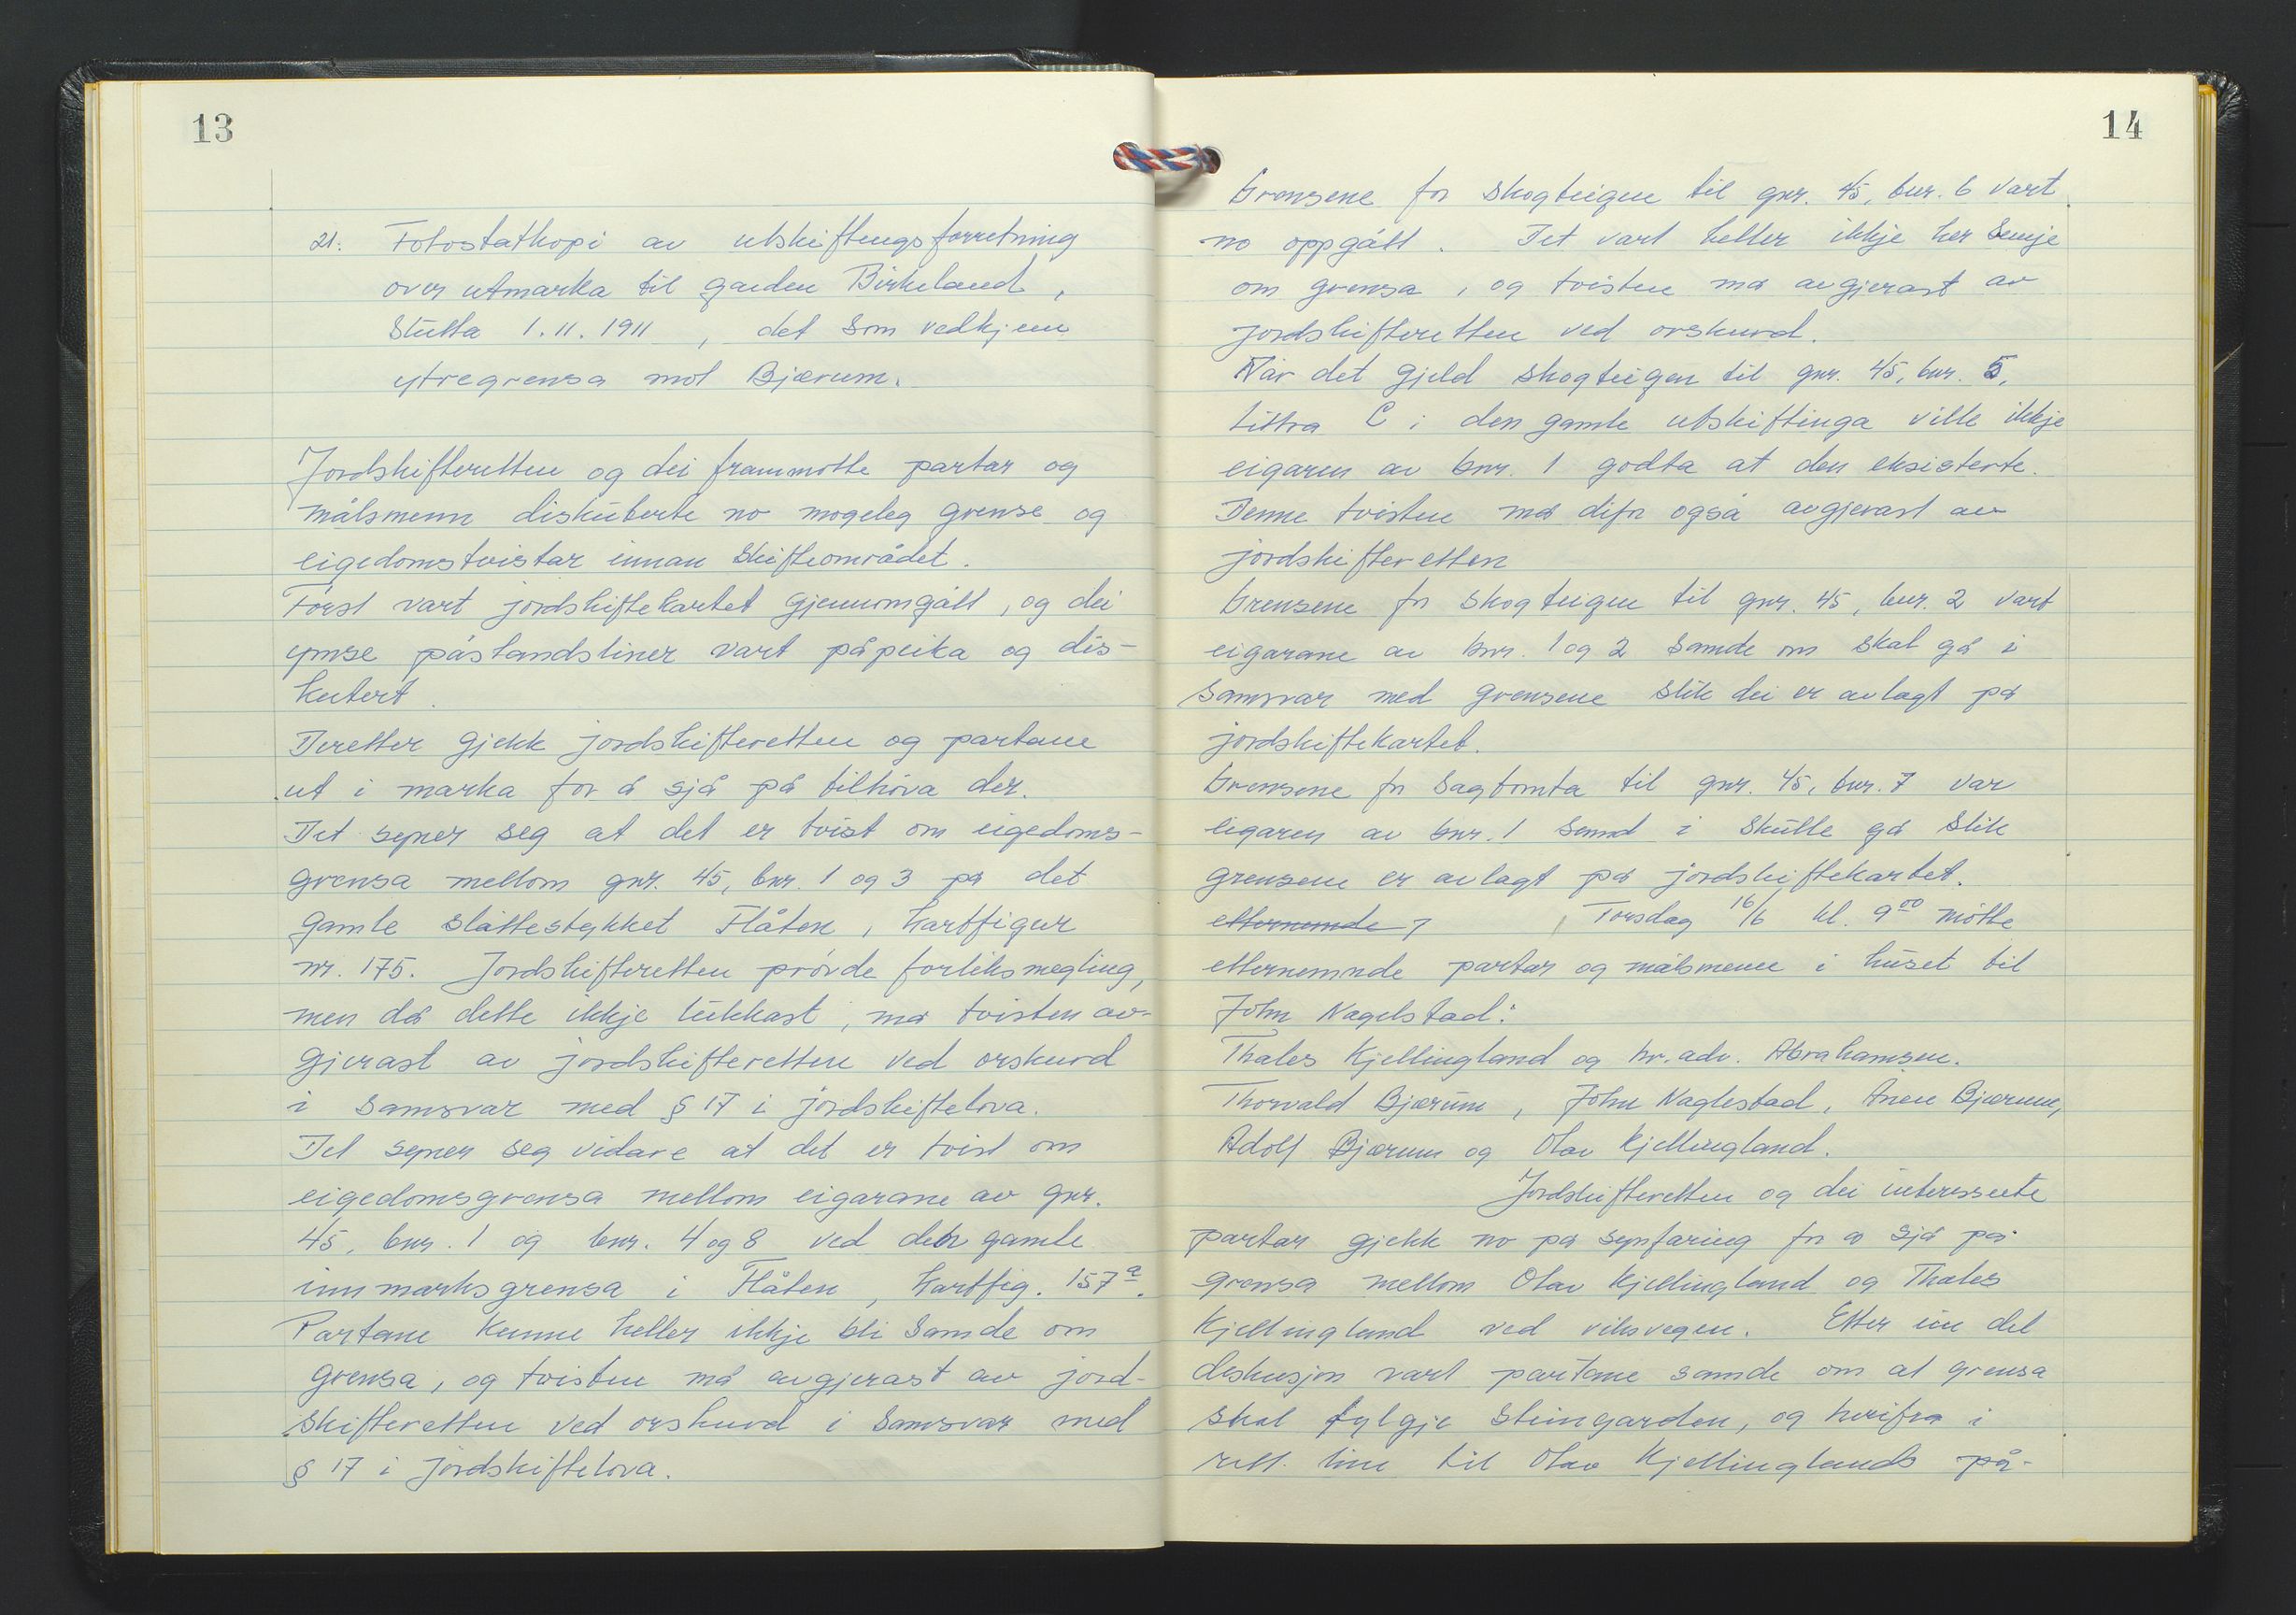 13
21. Fotostatkopi av utskiftingsforretning
over utmarka til garden Birkeland,
slutta 1.11.1911, det som vedkjem
ytregrensa mot Bjærum.
Jordskifteretten og dei frammøtte partar og
målsmenn diskuterte no mogeleg grense og
eigedomstvistar innan skifteområdet.
Først vart jordskiftekartet gjennomgått, og dei
ymse påstandsliner vart påpeika og dis-
kutert.
Deretter gjekk jordskifteretten og partane
ut i marka for å sjå på tilhøva der.
Det syner seg at det er tvist om eigedoms-
grensa mellom gnr. 45, bnr. 1 og 3 på det
gamle slåttestykket Flåten, kartfigur
nr. 175. Jordskifteretten prøvde forliksmegling,
men då dette ikkje lukkast, må tvisten av-
gjerast av jordskifteretten ved orskurd
i samsvar med § 17 i jordskiftelova.
Det syner seg vidare at det er tvist om
eigedomsgrensa mellom eigarane av gnr.
45, bnr. 1 og bnr. 4 og 8 ved den gamle
innmarksgrensa i Flåten, kartfig. 157a.
Partane kunne heller ikkje bli samde om
grensa, og tvisten må avgjerast av jord-
skifteretten ved orskurd i samsvar med
§ 17 i jordskiftelova.
14
Grensene for skogteigen til gnr. 45, bnr. 6 vart
no oppgått. Det vart heller ikkje her semje
om grensa, og tvisten må avgjerast av
jordskifteretten ved orskurd.
Når det gjeld skogteigen til gnr. 45, bnr. 5,
littra C i den gamle utskiftinga ville ikkje
eigaren av bnr. 1 godta at den eksisterte.
Denne tvisten må difor også avgjerast av
jordskifteretten
Grensene for skogteigen til gnr. 45, bnr. 2 vart
eigarane av bnr. 1 og 2 samde om skal gå i
samsvar med grensene slik dei er avlagt på
jordskiftekartet.
Grensene for sagtomta til gnr. 45, bnr. 7 var
eigaren av bnr. 1 samd i skulle gå slik
grensene er avlagt på jordskiftekartet.
etternemnde Torsdag 16/6 kl. 9 00 møtte
etternemnde partar og målsmenn i huset til
John Nagelstad:
Thales Kjellingland og hr. adv. Abrahamsen.
Thorvald Bjærum, John Naglestad, Anen Bjærum,
Adolf Bjærum og Olav Kjellingland.
Jordskifteretten og dei interesserte
partar gjekk no på synfaring for å sjå på
grensa mellom Olav Kjellingland og Thales
Kjellingland ved riksvegen. Etter ein del
diskusjon vart partane samde om at grensa
skal fylgje steingarden, og herifra i
rett line til Olav Kjellinglands på-